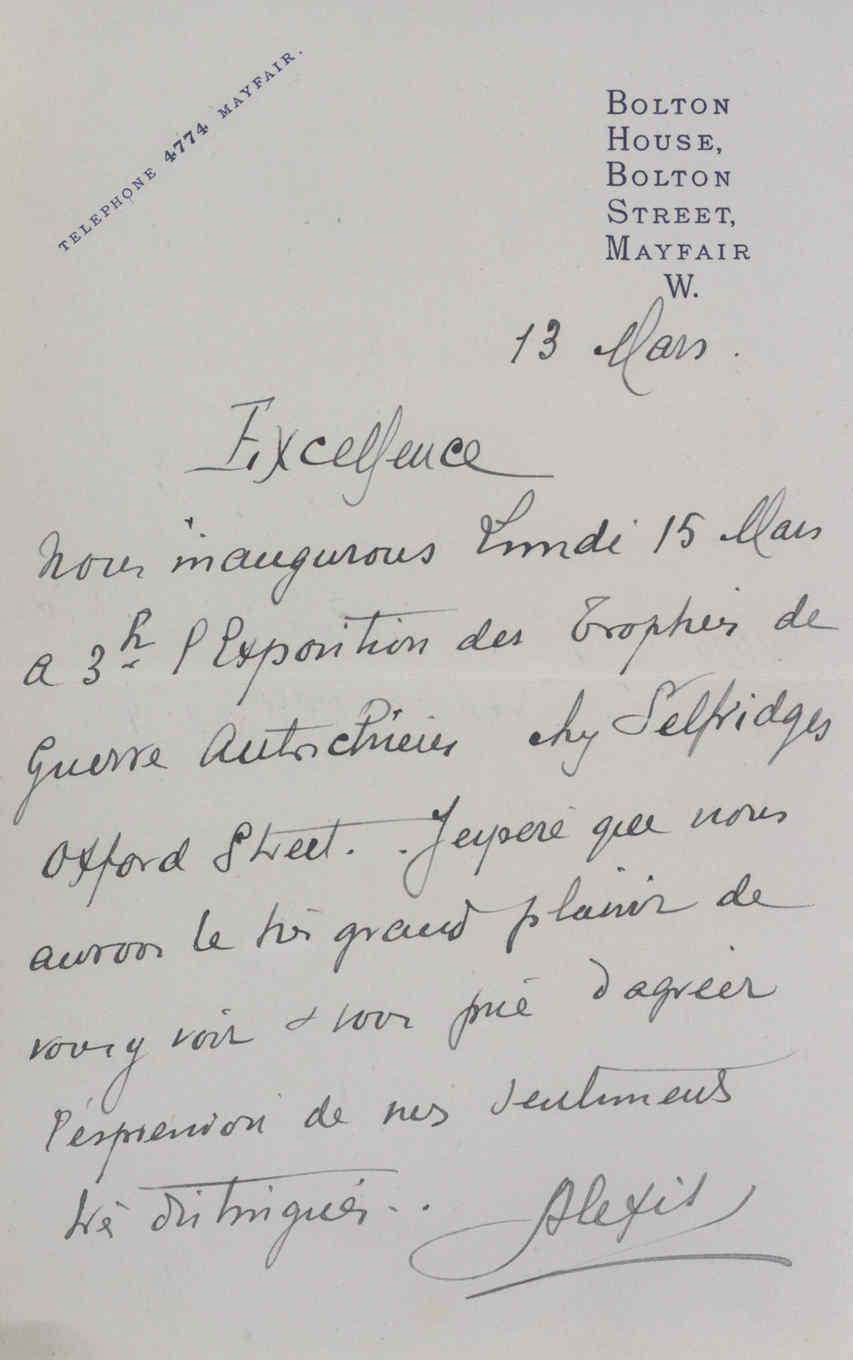 TELEPHONE 4774 MAYFAIR.
BOLTON
HOUSE,
BOLTON
STREET,
MAYFAIR
W.
13 Mars.
Excellence
Nous inaugurons Lundi 15 Mars
a 3h l'Exposition des Trophées de
Guerre Autrichiens chez Selfridges
Oxford Street. J'espere que nous
aurons le très grand plaisir de
vous y voir & vous prie d'agréer
l'expression de mes sentiments
très distingués..
Alexis